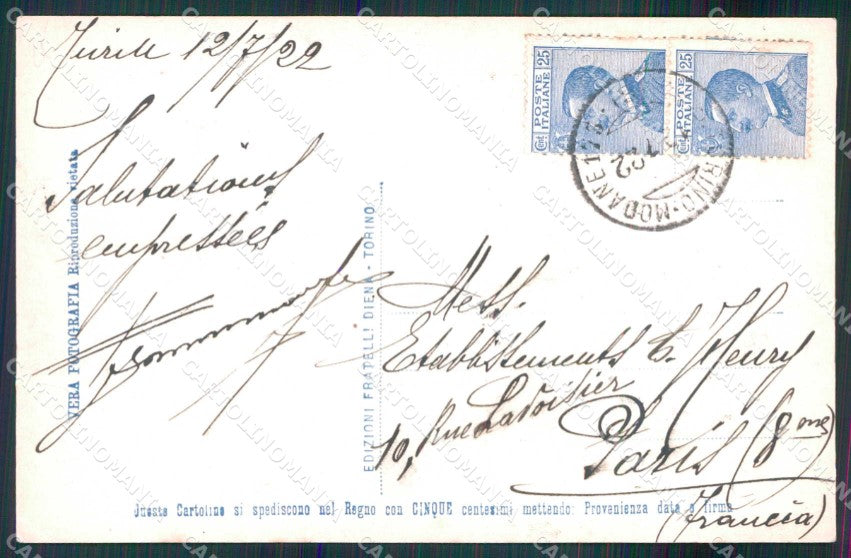 12/7/22
Salutations
empressées
VERA FOTOGRAFIA Riproduzione vietata
EDIZIONI FRATELLI DIENA - TORINO
Cent 25
POSTE
ITALIANE
Cent 25
POSTE
ITALIANE
TORINO-MODANE
Mess.
Etablissements E. Henry
10, Rue Lavoisier
Paris (8me)
(Francia)
Queste Cartoline si spediscono nel Regno con CINQUE centesimi mettendo: Provenienza data e firma
CARTOLINOMANIA